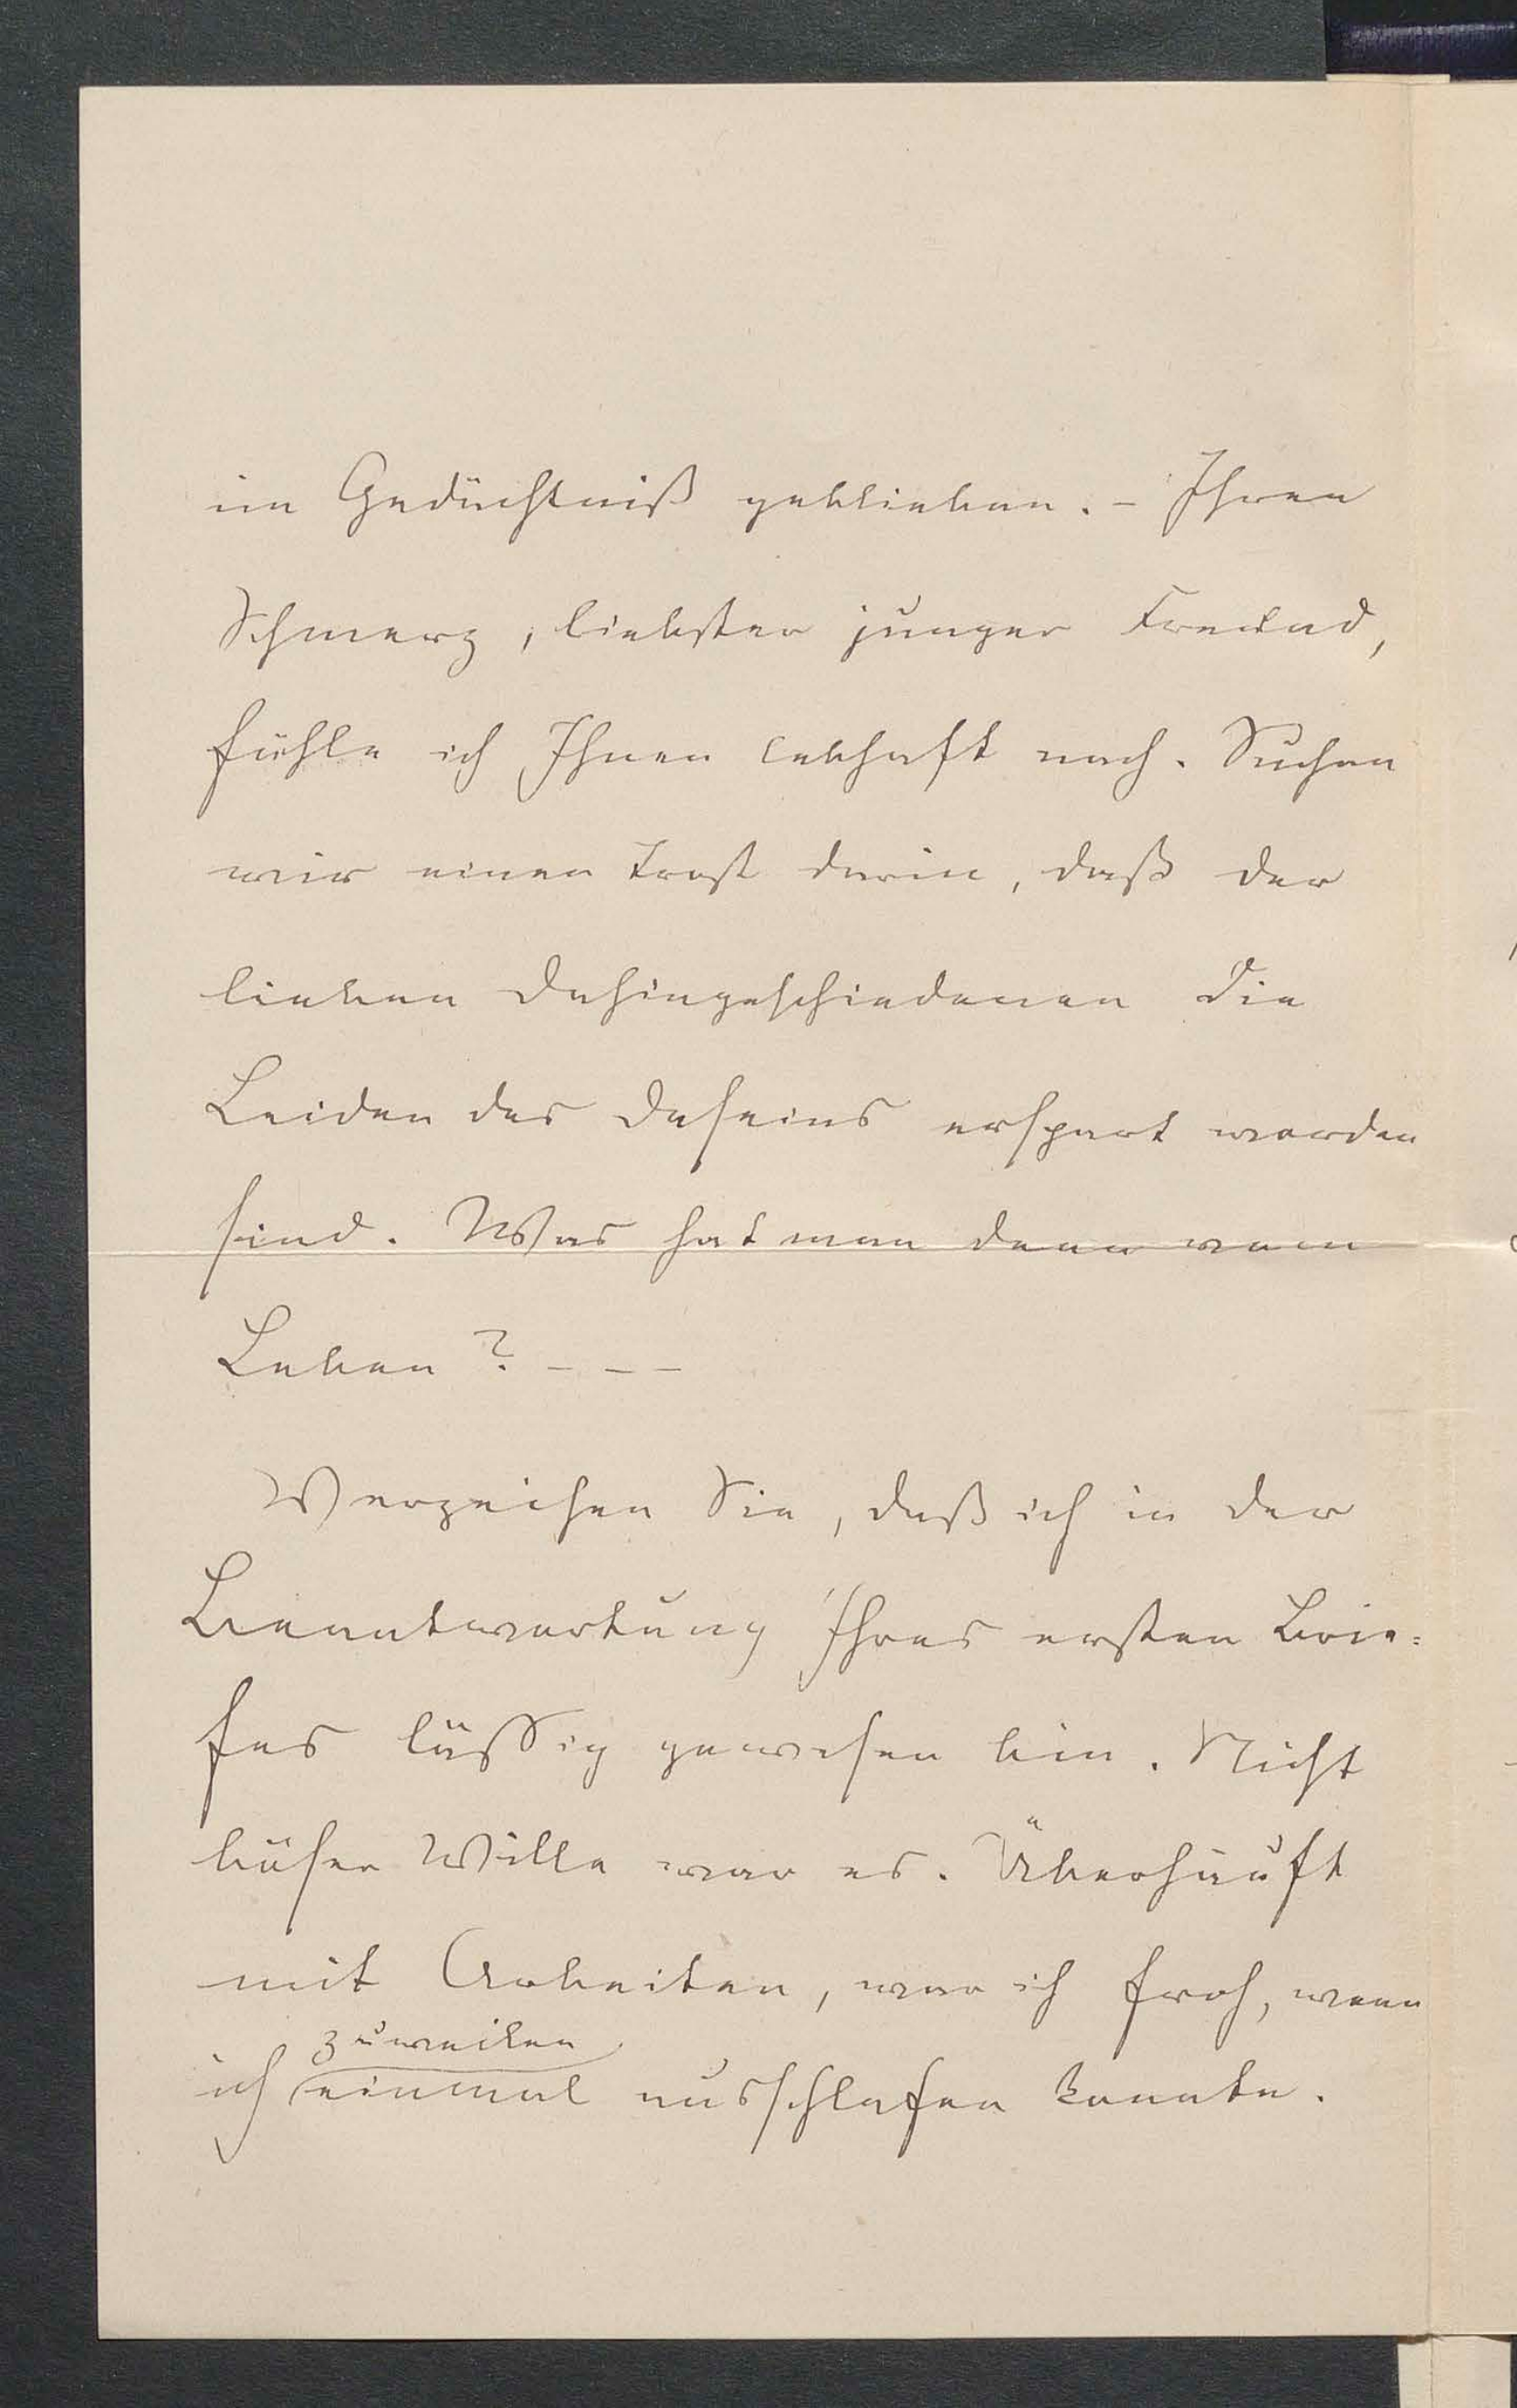 im Gedächtniß geblieben. – Ihren
Schmerz, liebster junger Freund,
fühle ich Ihnen lebhaft nach. Suchen
wir einen Trost darin, daß der
lieben Dahingeschiedenen die
Leiden des Daseins erspart worden
sind. Was hat man denn vom
Leben? – – –
Verzeihen Sie, daß ich in der
Beantwortung Ihres ersten Brie=
fes lässig gewesen bin. Nicht
böser Wille war es. Überhäuft
mit Arbeiten, war ich froh, wenn
zuweilen
ich einmal ausschlafen konnte.